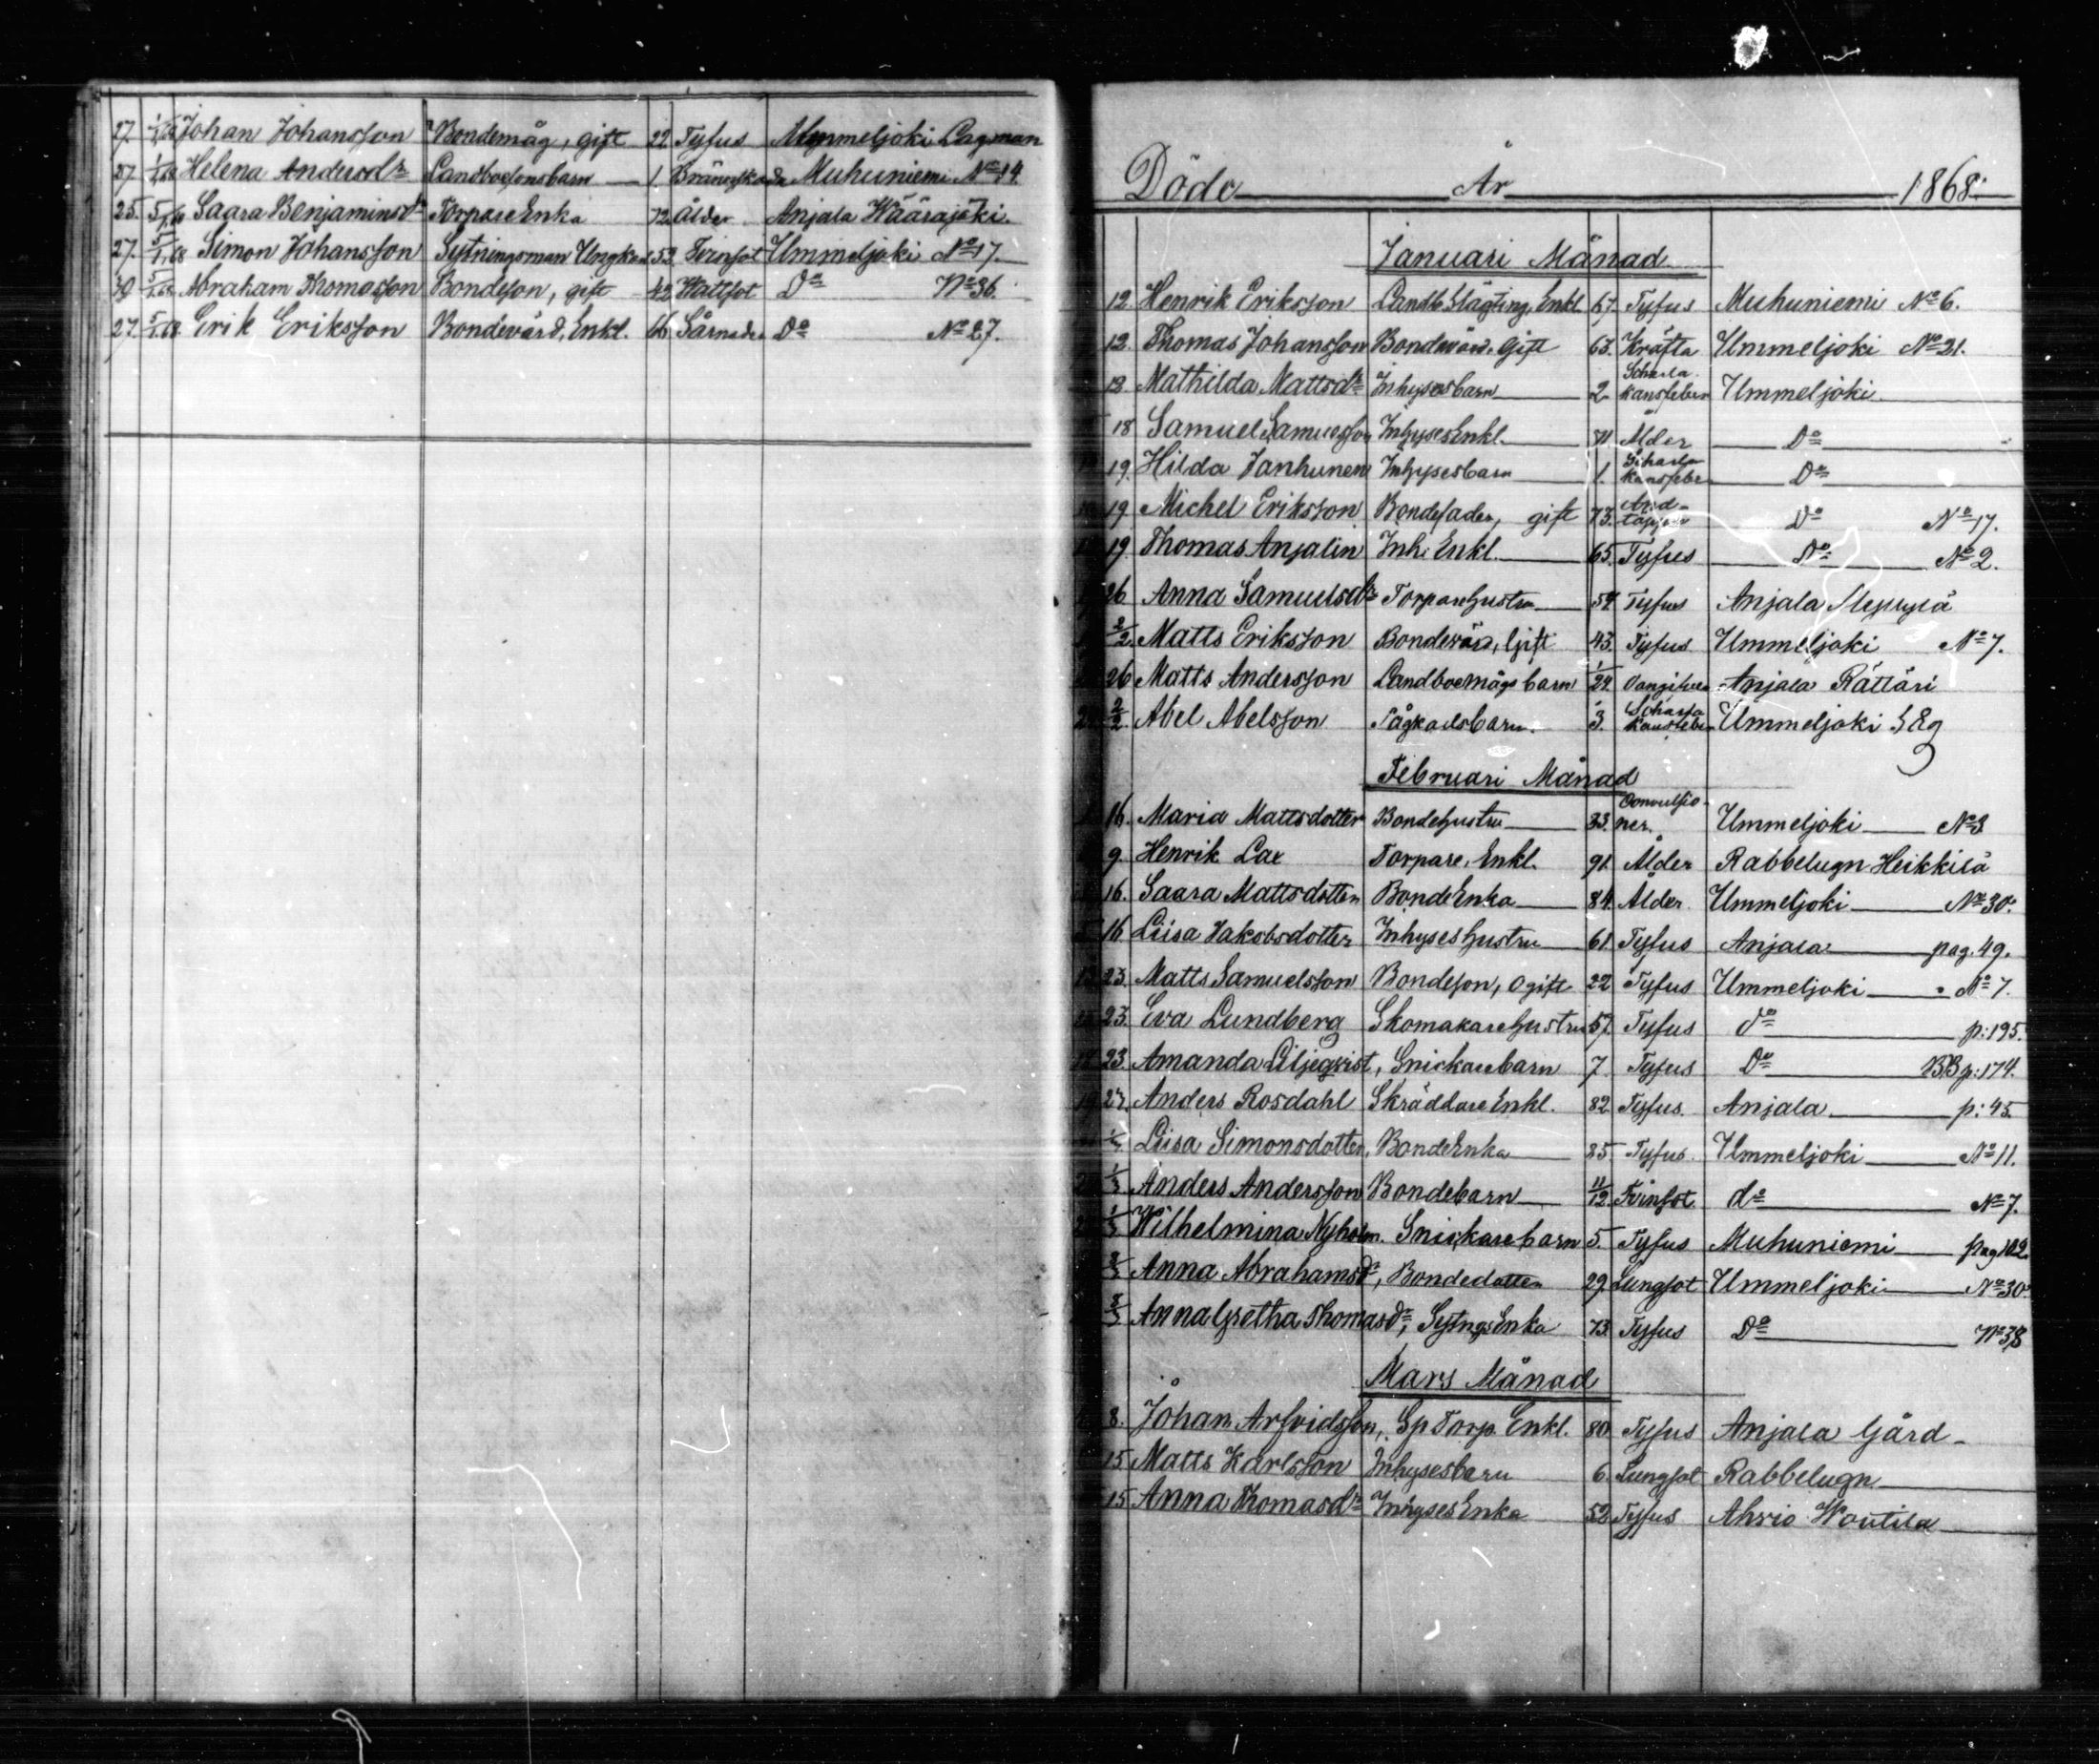 27. 1/1,68 Johan Johansson Bondemåg, gift 22 Tyfus Ummeljoki Lagman
27 1/1,68 Helena Andersdr Landboesonsbarn 1. Brännskada Muhuniemi No 14.
25. 5/1,68 Saara Benjaminsdr TorpareEnka 72 Ålder Anjala Wäärajoki.
27. 5/1,68 Simon Johansson Sytningsman Ungkarl 53 Tvinsot Ummeljoki No 17.
5/1,68 Abraham Thomasson Bondeson, gift 42 Wattsot Do No 36.
27. 5/1,68 Erik Eriksson Bondevärd, Enkl. 66 Sårnader Do No 27.
Döde År 1868.
Januari Månad
12. Henrik Eriksson Landb. Slägting, Enkl. 67. Tyfus Muhuniemi No 6.
12. Thomas Johansson Bondevärd. Gift 63. Kräfta Ummeljoki No 21.
13 Mathilda Mattsdr Inhysesbarn 2 Scharlakansfeber Ummeljoki
18 Samuel Samuelsson InhysesEnkl. 71 Ålder Do
19. Hilda Janhunen Inhysesbarn 1. Scharlakansfeber Do
19 Michel Eriksson Bondefader, gift 73. Andtäppa Do No 17.
19 Thomas Anjalin Inh. Enkl. 65. Tyfus Do No 2.
26 Anna Samuelsdr Torparehustru 54 Tyfus Anjala
2/2. Matts Eriksson Bondevärd, Gift 43. Tyfus Ummeljoki No 7.
26 Matts Andersson Landboemågs barn 1/24 Anjala Rättäri
2/2. Abel Abelsson barn. 3. Scharlakansfeber Ummeljoki
Februari Månad
16. Maria Mattsdotter Bondehustru 33. Convulsioner. Ummeljoki No 3
9. Henrik Lax Torpare, Enkl. 91. Ålder Rabbelugn Heikkilä
16. Saara Mattsdotter BondeEnka 84. Ålder Ummeljoki No 30.
16 Liisa Jakobsdotter Inhyseshustru 61. Tyfus Anjala pag. 49.
23. Matts Samuelsson Bondeson, Ogift 22 Tyfus Ummeljoki No 7.
23. Eva Lundberg Skomakarehustru 57. Tyfus do p: 195.
23. Amanda Liljeqvist, Snickarebarn 7 Tyfus Do BB p: 174.
Anders Rosdahl Skräddare Enkl. 82 Tyfus Anjala p: 45.
Liisa Simonsdotter, BondeEnka 85. Tyfus. Ummeljoki No 11.
1/3. Anders Andersson Bondebarn 11/12 Tvinsot. do No 7.
1/3 Wilhelmina Nyholm. Snickarebarn 5. Tyfus Muhuniemi pag 102.
8/3 Anna Abrahamsdr, Bondedotter 29. Lungsot Ummeljoki No 30.
8/3 Anna Gretha Thomasdr, SytngsEnka 73. Tyfus Do No 38
Mars Månad
8. Johan Arfvidsson, Sp Torp. Enkl. 80 Tyfus Anjala Gård
15 Matts Karlsson Inhysesbarn 6. Lungsot Rabbelugn
15 Anna Thomasdr InhysesEnka 52 Tyfus Ahvio Woutila